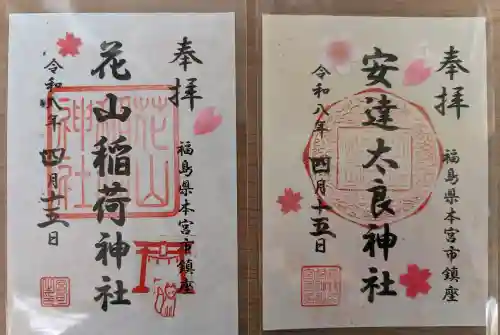 奉拝
福島県本宮市鎮座
花山稲荷神社
令和八年四月十五日
花山稲荷神社
奉拝
福島県本宮市鎮座
安達太良神社
令和八年四月十五日